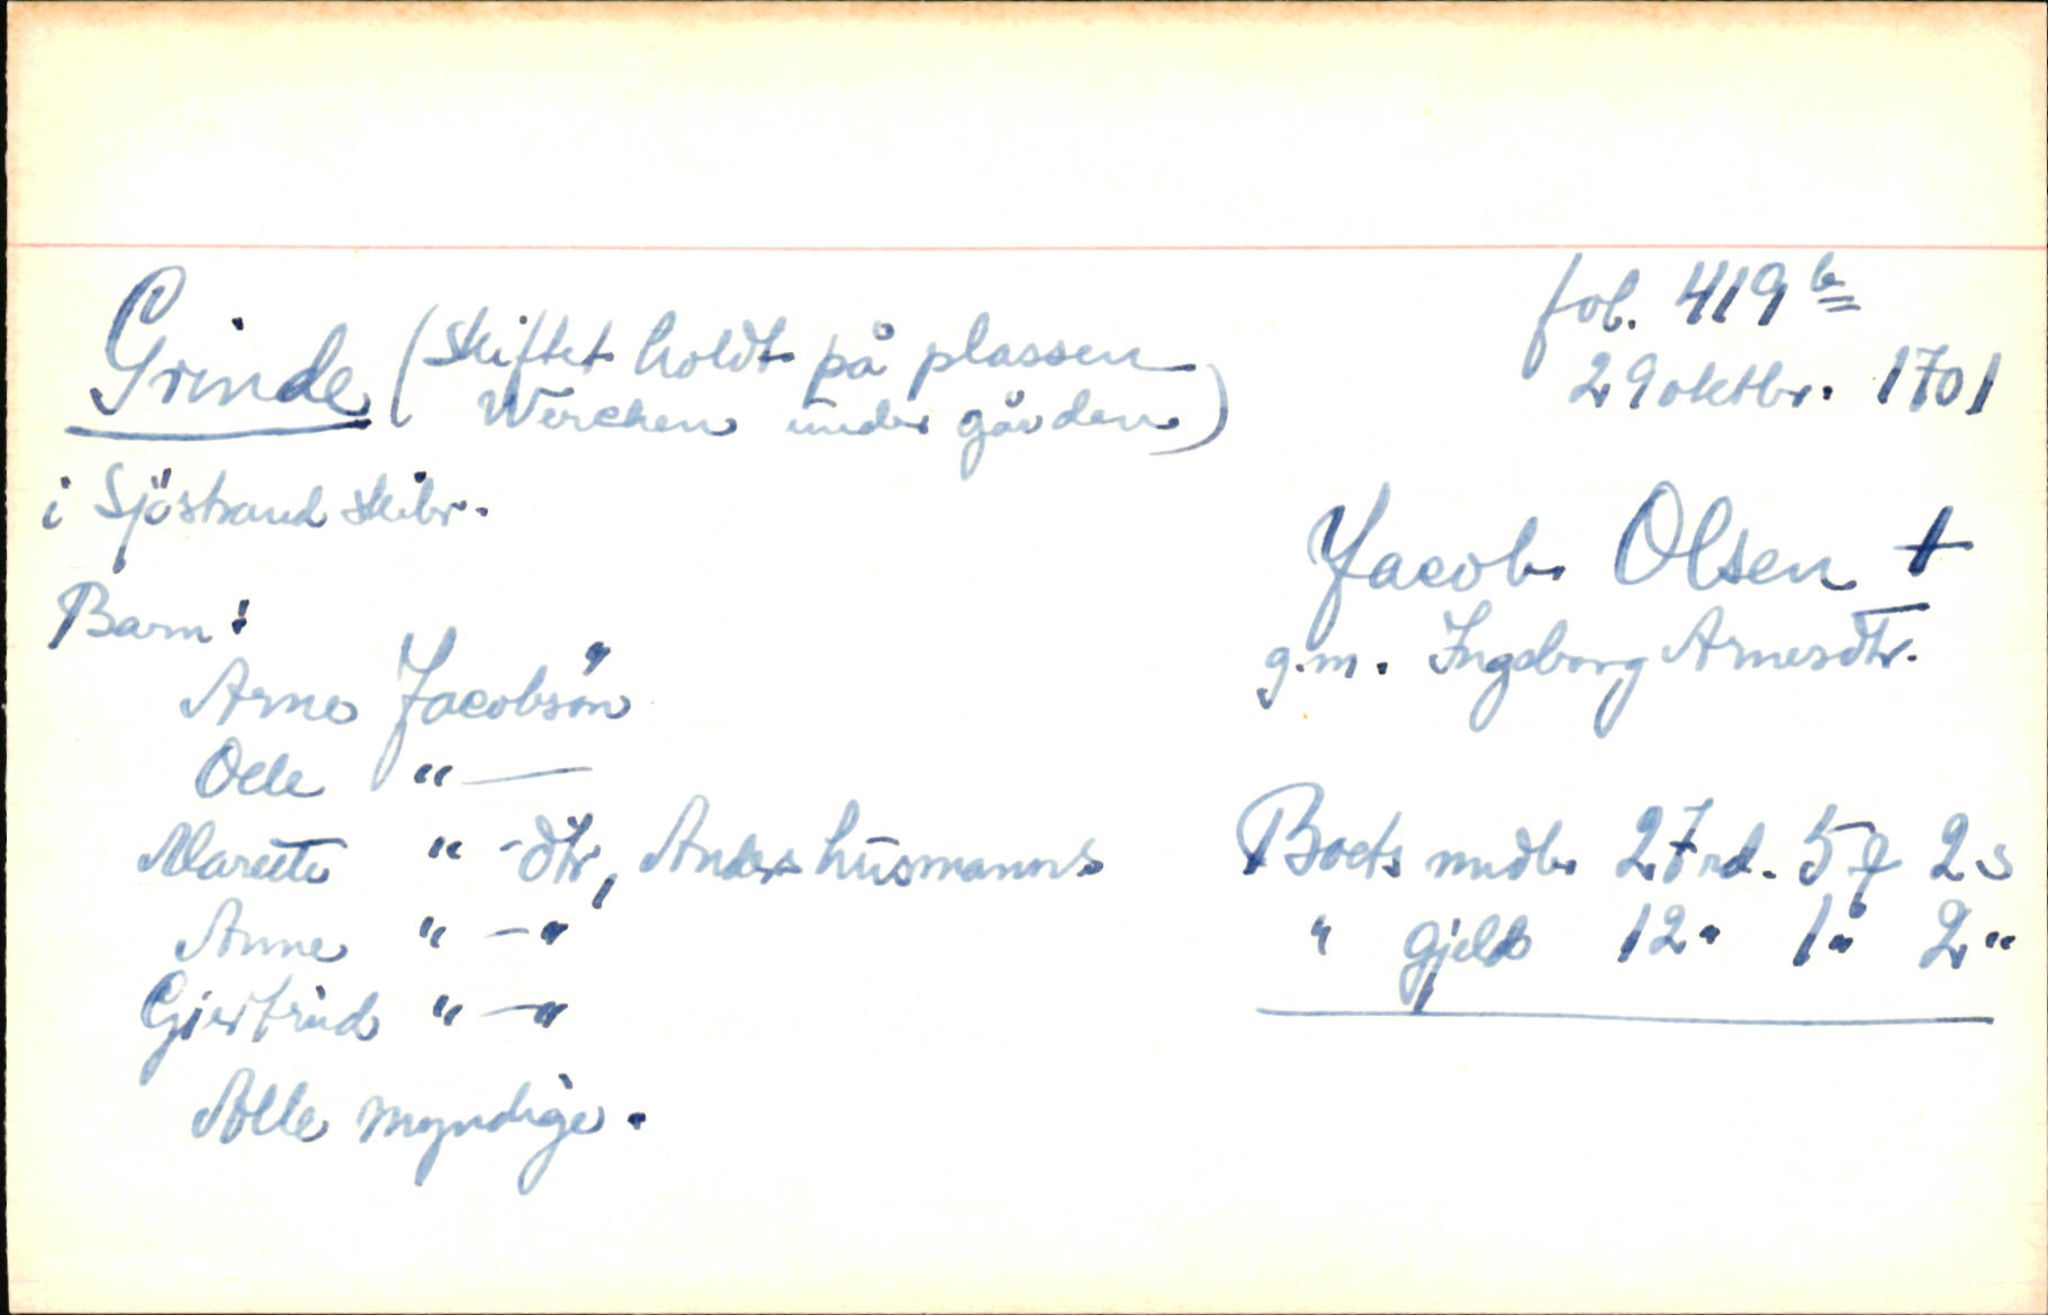 Grinde (Skiftet holdt på plassen
Werchen under gården)
fol. 419 b
29 oktbr. 1701
i Sjöstrand skibr.
Jacob Olsen +
g.m. Ingeborg Arnesdtr.
Barn:
Arne Jacobsön
Oele " —
Marette " - dtr, Anders husmanns
Anne " - "
Giertrud " - "
Alle myndige.
Boets midl. 27 rd. 5 ƒ 2 s
" gjeld 12 " 1 " 2 "